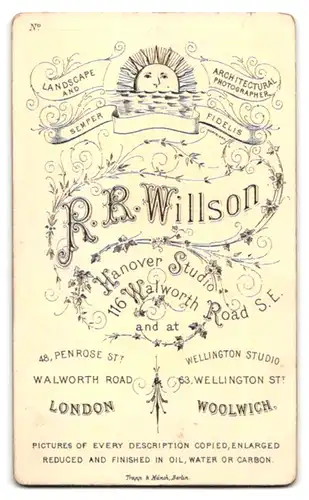 No
LANDSCAPE AND
ARCHITECTURAL PHOTOGRAPHER
SEMPER FIDELIS
R. R. Willson
Hanover Studio
116 Walworth Road S.E.
and at
48, PENROSE STT
WALWORTH ROAD
LONDON
WELLINGTON STUDIO
63, WELLINGTON STT
WOOLWICH.
PICTURES OF EVERY DESCRIPTION COPIED, ENLARGED
REDUCED AND FINISHED IN OIL, WATER OR CARBON.
Trapp & Münch, Berlin.